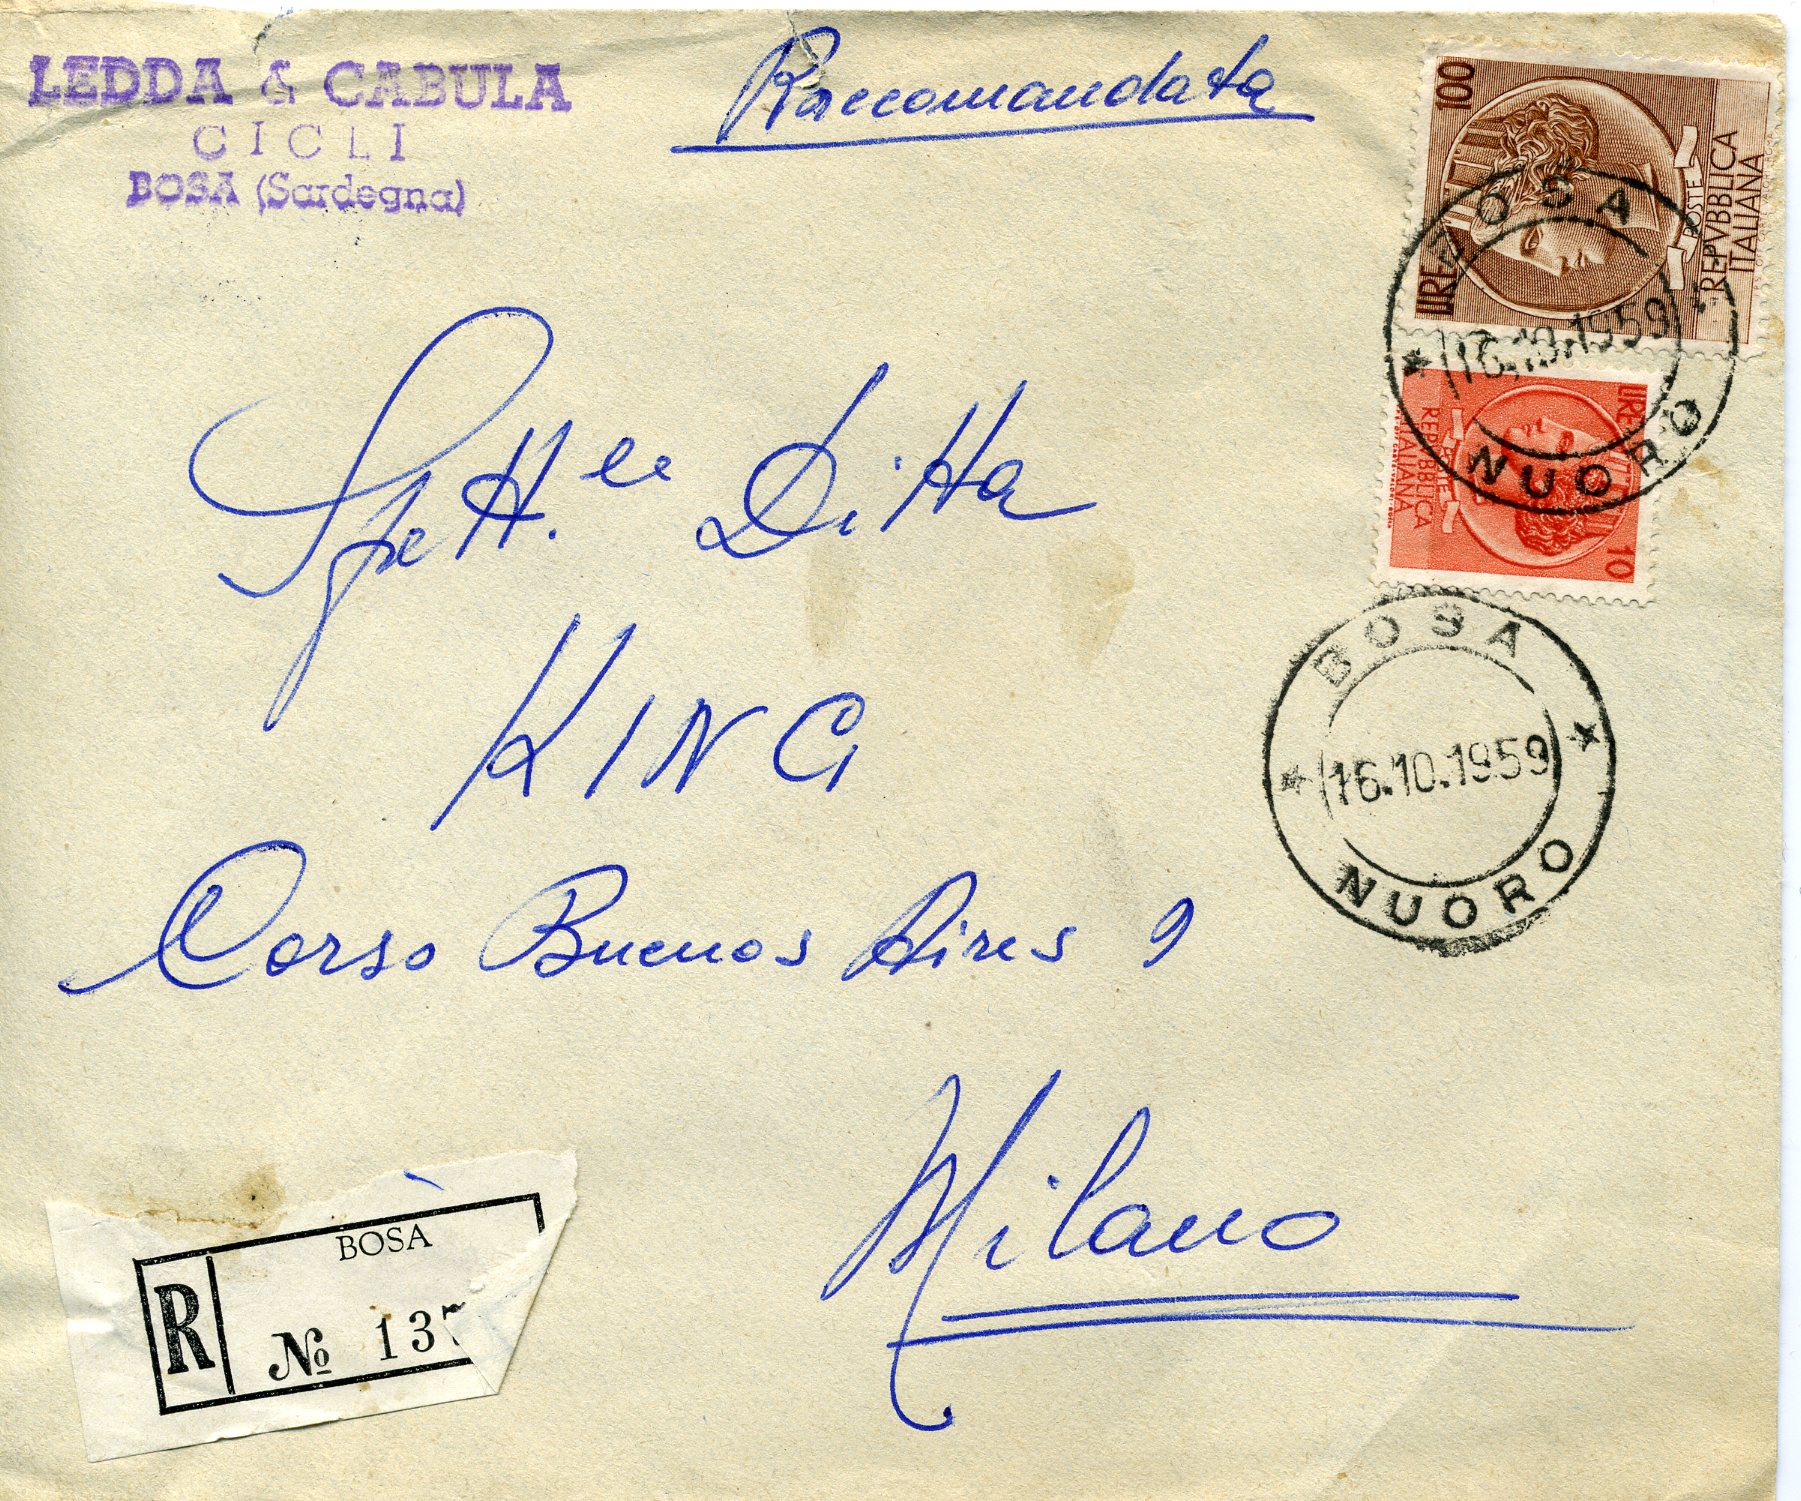 LEDDA & CABULA
CICLI
BOSA (Sardegna)
Raccomandata
LIRE 100
POSTE
REPVBBLICA
ITALIANA
BOSA
16.10.1959
NUORO
LIRE 10
POSTE
REPVBBLICA
ITALIANA
Spett.le Ditta
KING
Corso Buenos Aires 9
Milano
BOSA
16.10.1959
NUORO
BOSA
R
No 137